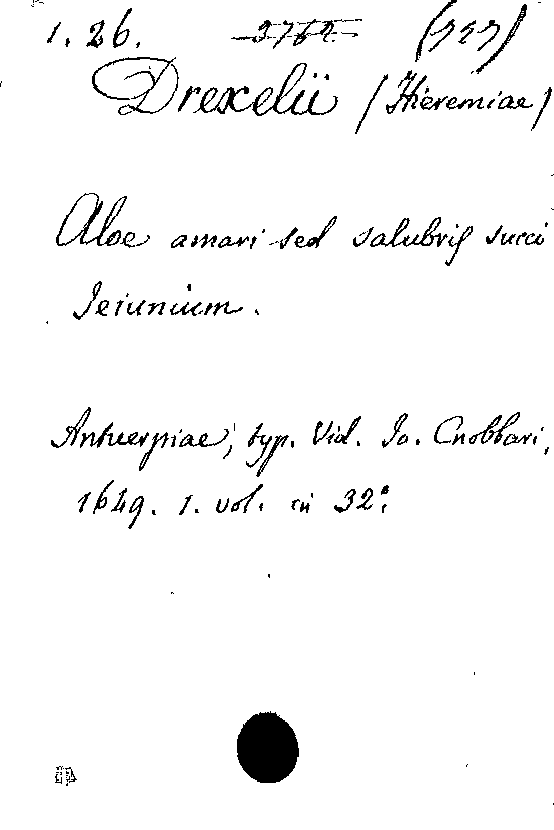 1. 26. 3762 (727)
Drexelii (Hieremiae)
Aloe amari sed salubris succi
Jeiunium.
Antuerpiae, typ. Vid. Io. Cnobbari,
1649. 1. vol. in 32º.